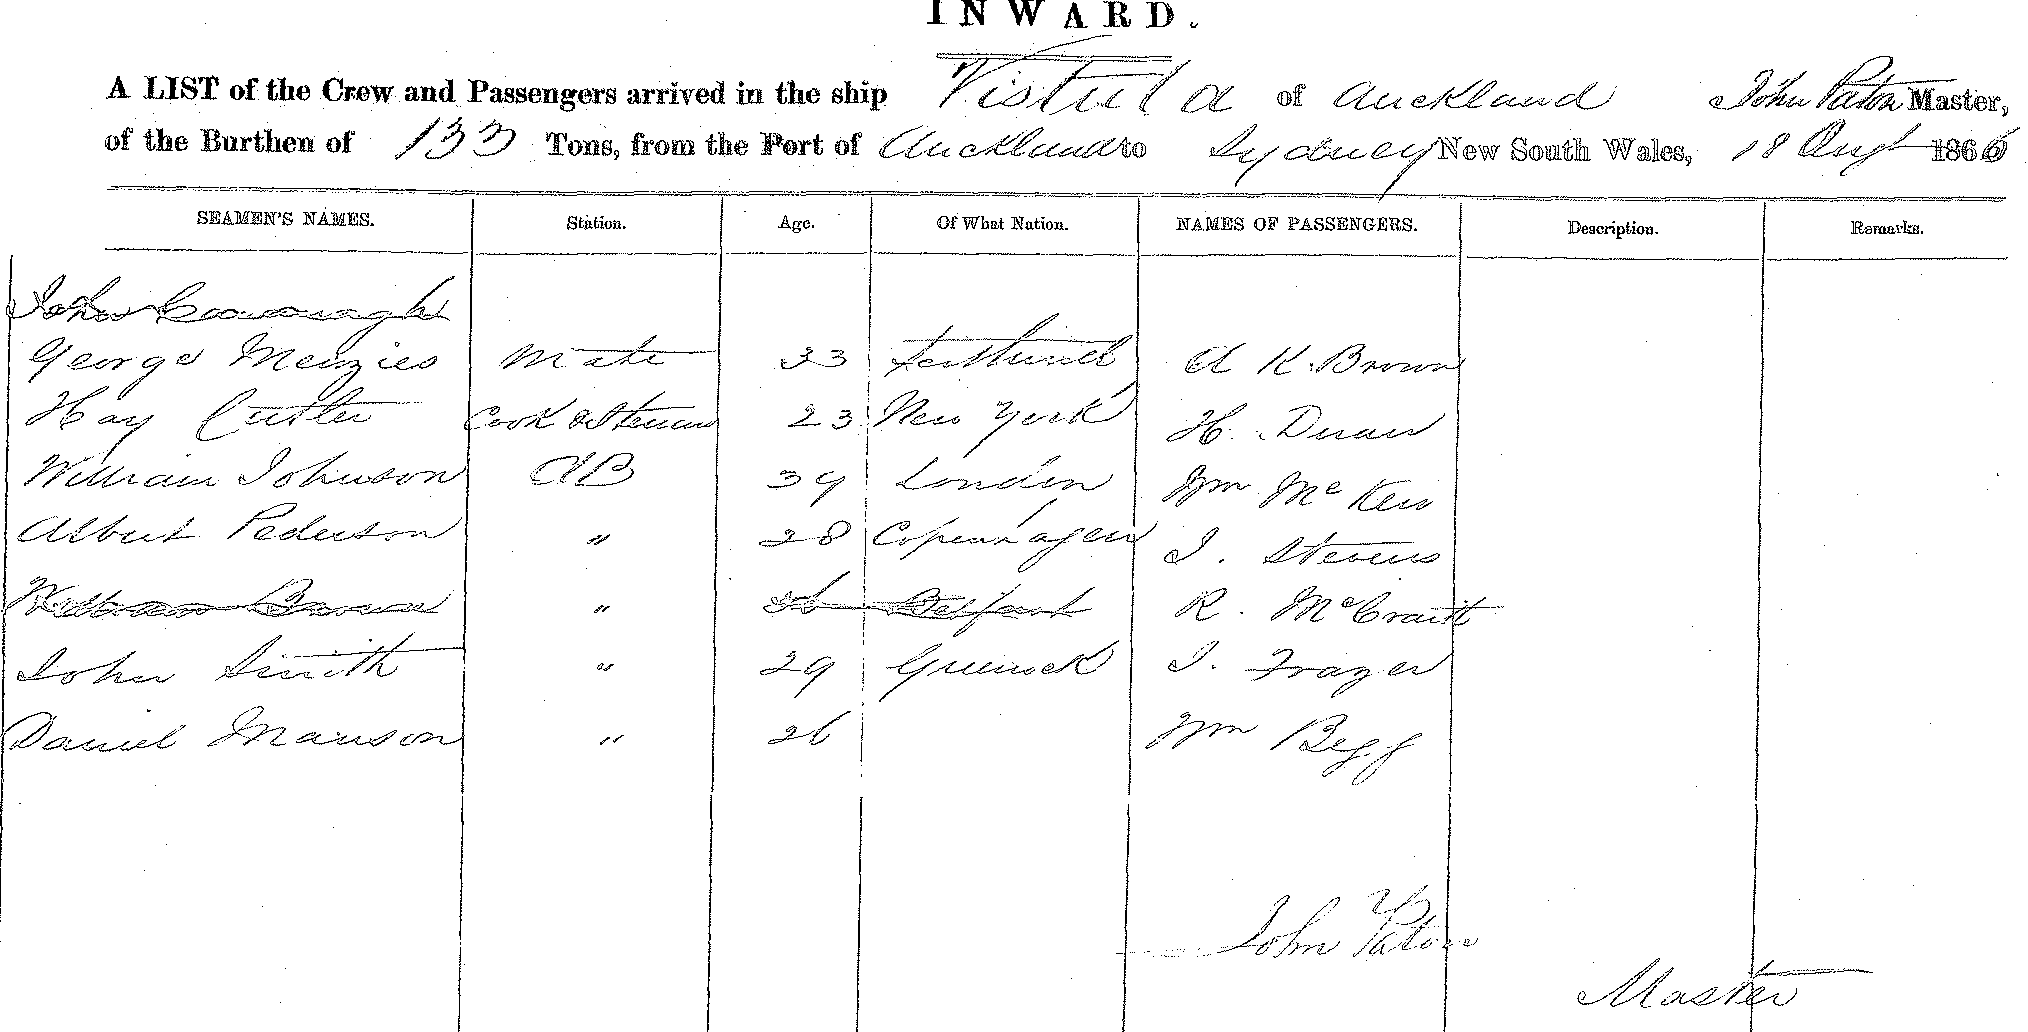 INWARD.
A LIST of the Crew and Passengers arrived in the ship Vistula of Auckland John Paton Master,
of the Burthen of 133 Tons, from the Port of Auckland to Sydney New South Wales, 18 Augt 1866
SEAMEN'S NAMES. Station. Age. Of What Nation. NAMES OF PASSENGERS. Description. Remarks.
John Cavanagh
George Menzies Mate 33 A K. Brown
Hay Cutler Cook & Steward 23 New York H.
William Johnson AB 39 London Wm
Albert Pederson " 28 Copenhagen J. Stevens
William Brown " Belfast R. McCraith
John Smith " 29 Greenock J. Frazer
Daniel Manson " 26 Wm Begg
John Paton
Master